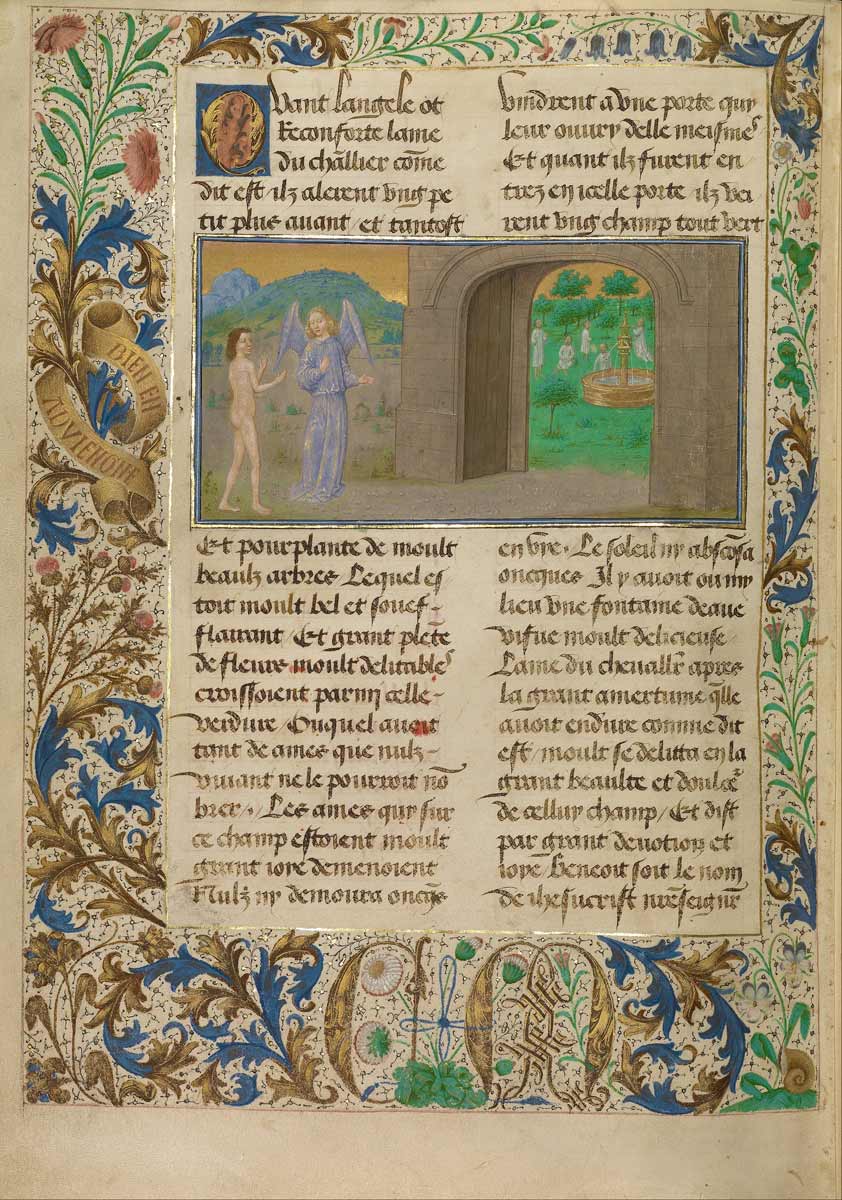 Quant langele ot
Reconforte lame
du chãllier cõme
dit est / ilz alerent vng pe
tit plus auant / et tantost
vindrent a vne porte quy
leur ouury delle meisme
Et quant ilz furent en
trez en icelle porte ilz vei
rent vng champ tout vert
Et pourplante de moult
beaulz arbres Lequel es
toit moult bel et souef
flairant / Et grant plete
de fleurs moult delitables
croissoient parmi celle
verdure / Ouquel auoit
tant de ames que nulz
viuant ne le pourroit nõ
brer / Les ames quy sur
ce champ estoient moult
grant ioye demenoient
Nulz ny demoura oncqs
en vye . Le soleil ny absconsa
oncques Il y auoit ou my
lieu vne fontaine deaue
vifue moult delicieuse /
Lame du cheuallr apres
la grant amertume qlle
auoit endure comme dit
est / moult se delitta en la
grant beaulte et doulcer
de celluy champ / Et dist
par grant deuotion et
ioye Benoit soit le nom
de ihesucrist nreseignr
BIEN EN
AVIENGNE
C M